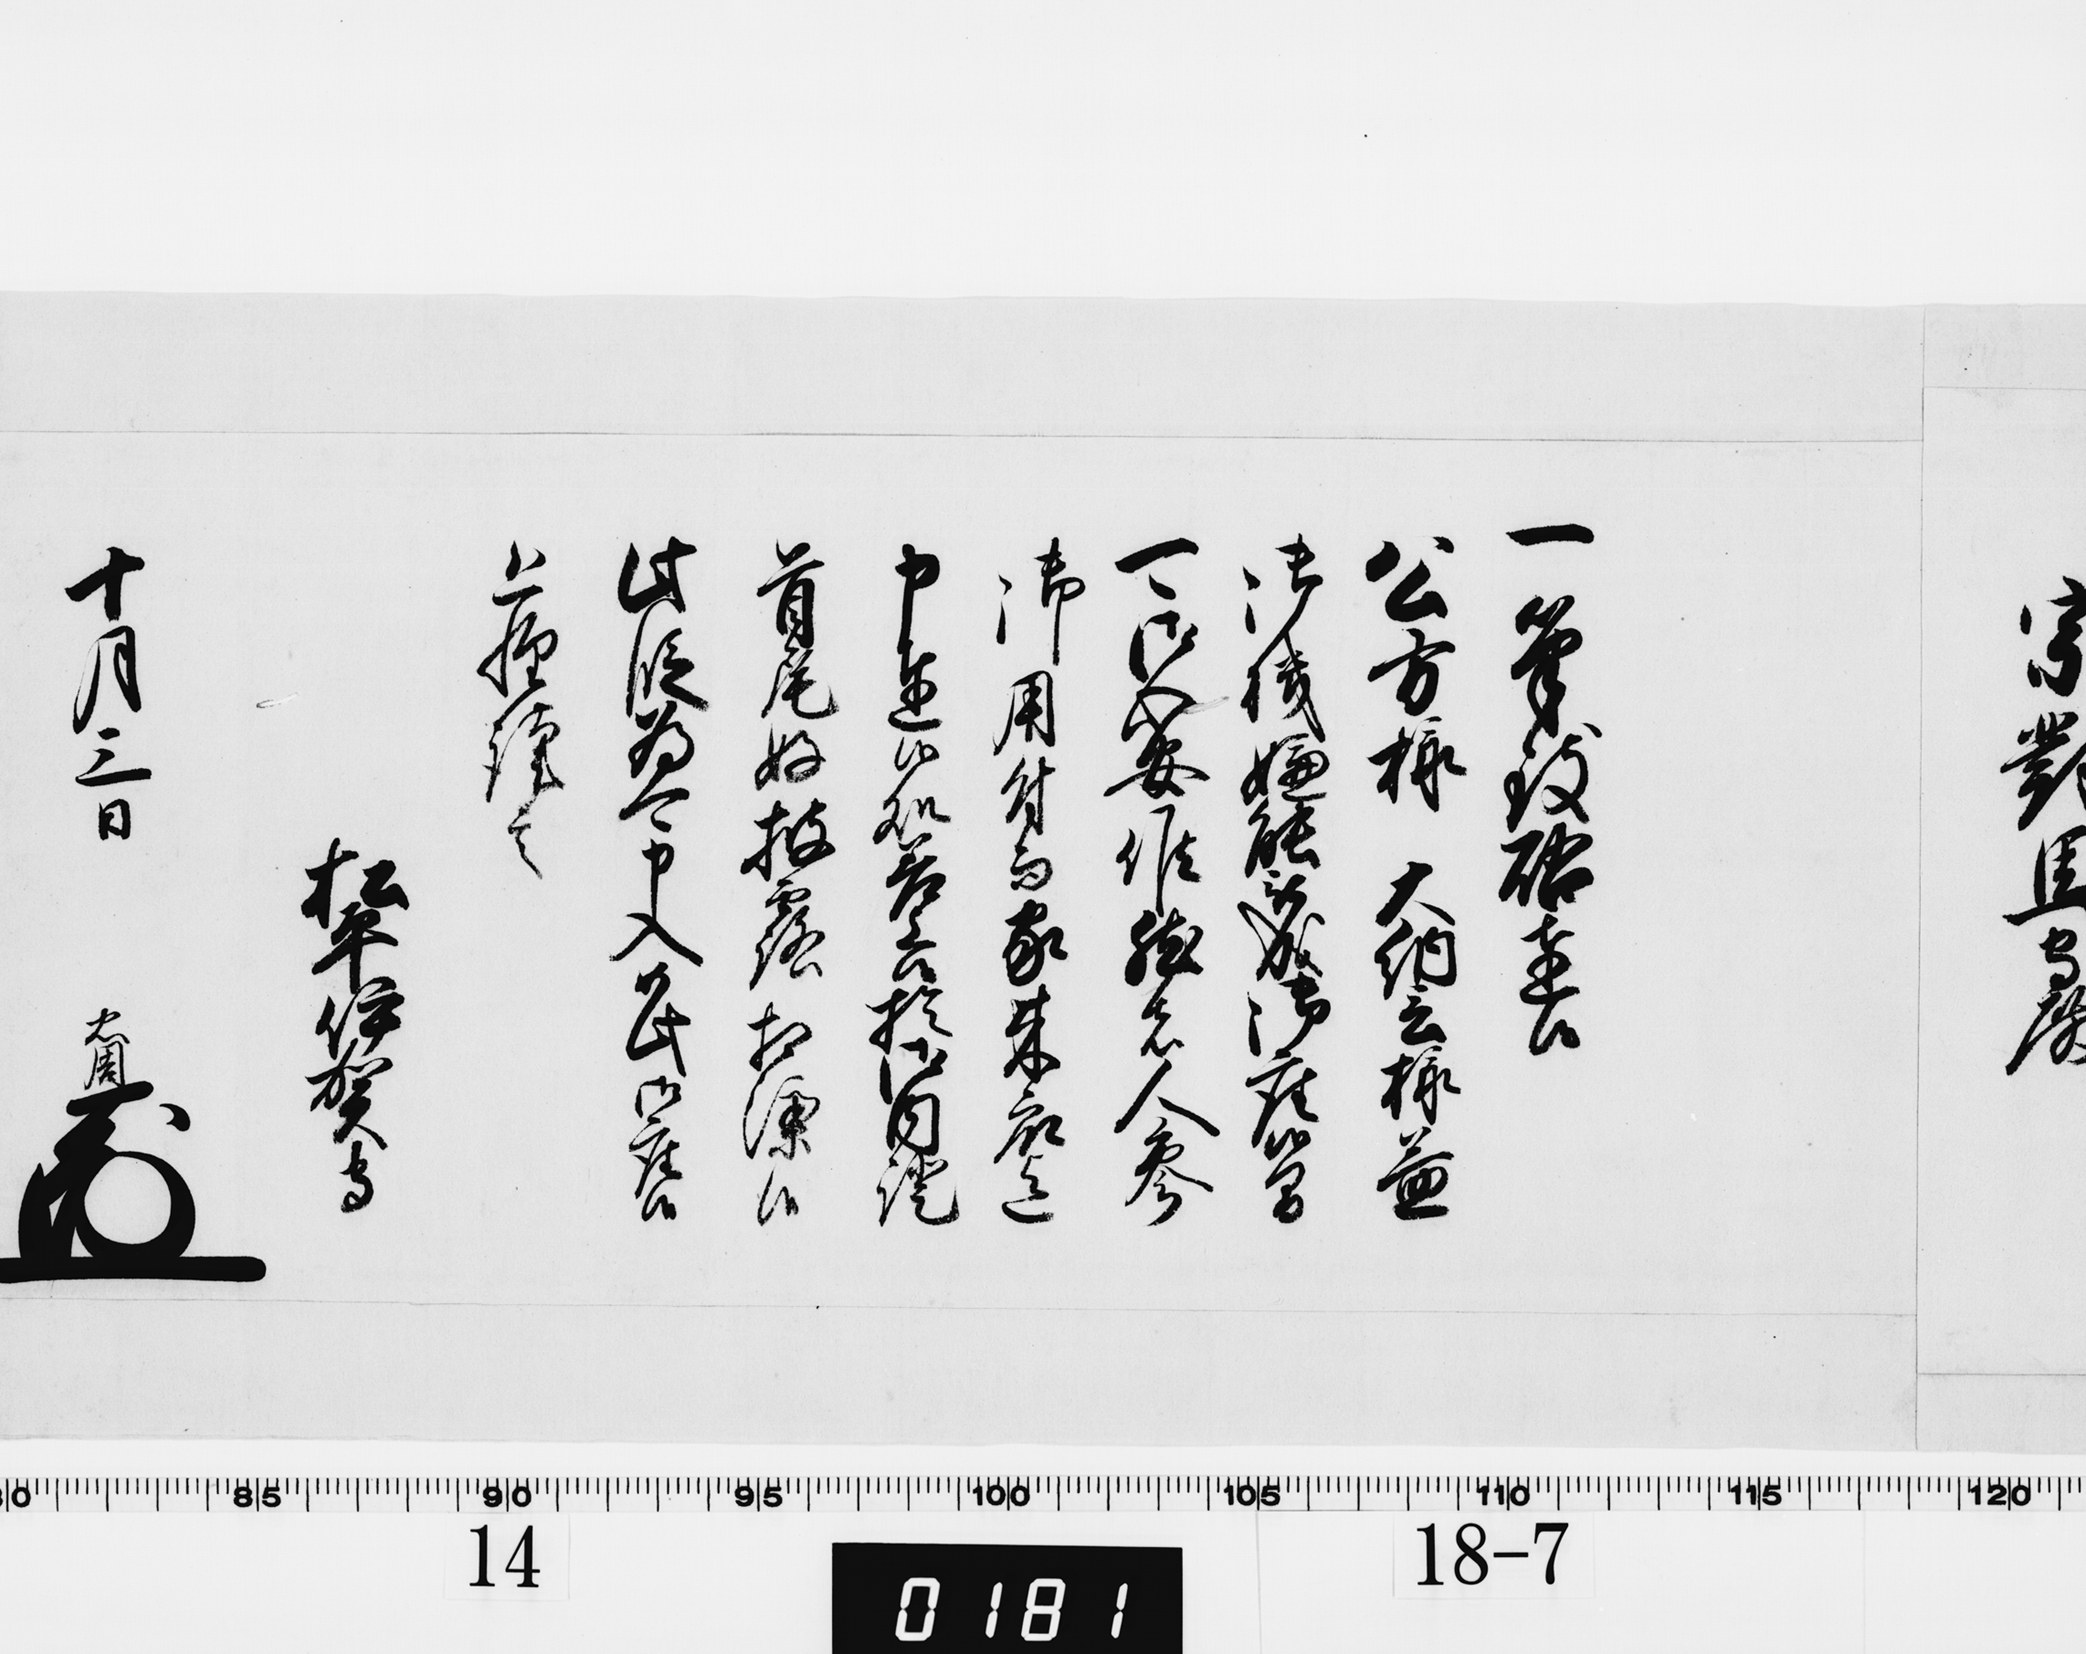 宗對馬守殿
一筆致啓達候
公方様 大納言様益
御機嫌能被成御座候間
可御心安候然者人参
御用付而家来
申達候処若於御内證
首尾好披露相済候
此段為可申入如此御座候
恐惶謹言
松平伊賀守
十月三日 忠周
80 85 90 95 100 105 110 115 120
14 18-7
0181